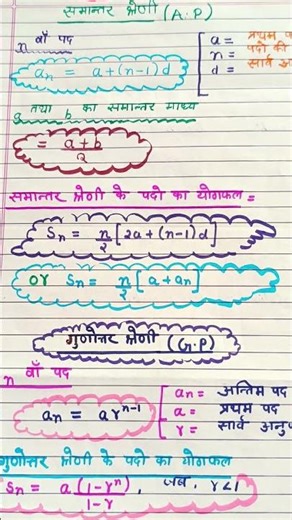 समान्तर श्रेणी (A.P)
n वाँ पद
aₙ = a+(n-1)d
a = प्रथम
n = पदो की
d = सार्व
a तथा b का समान्तर माध्य
= a+b/2
समान्तर श्रेणी के पदो का योगफल =
Sₙ = n/2 [2a+(n-1)d]
or Sₙ = n/2 [a+aₙ]
गुणोत्तर श्रेणी (G.P)
n वाँ पद
aₙ = arⁿ⁻¹
aₙ = अन्तिम पद
a = प्रथम पद
r = सार्व
गुणोत्तर श्रेणी के पदो का योगफल
Sₙ = a(1-rⁿ)/1-r, जब, r<1